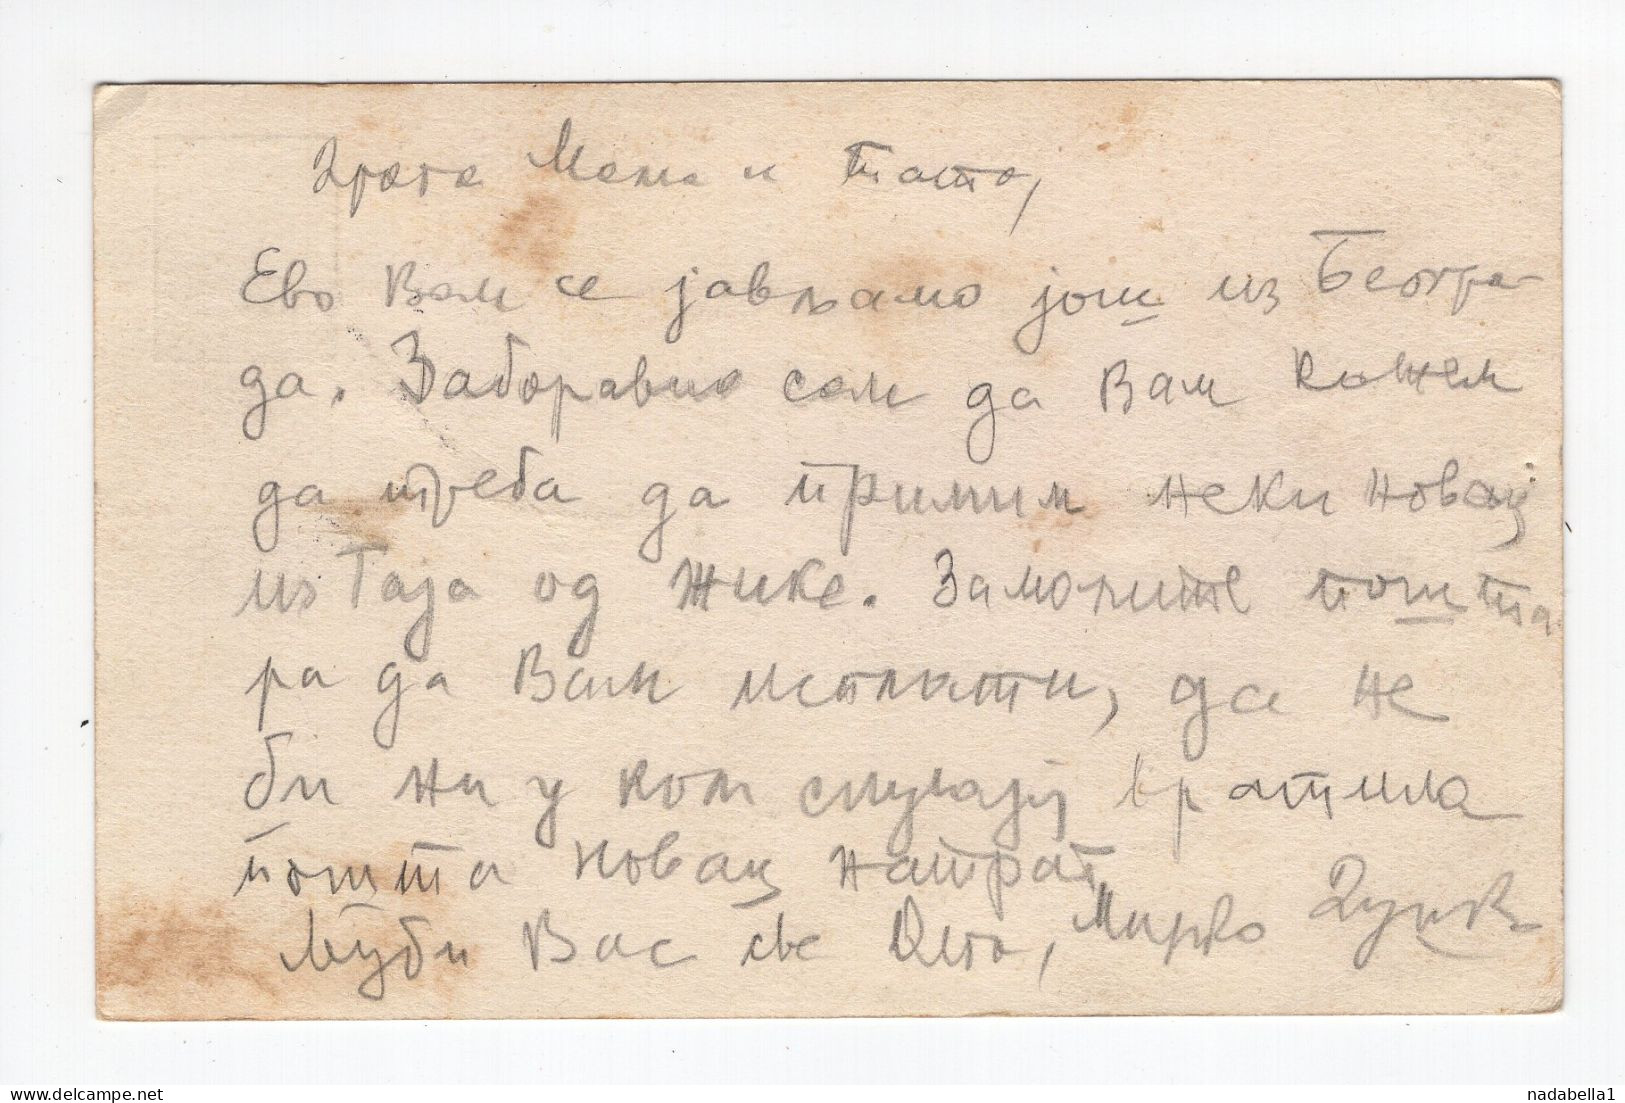 Драга Мама и Тато,
Ево Вам се јављамо још из Београ-
да. Заборавио сам да Вам кажем
да треба да примим неки новац
из Гаја од Жике. Замолите пошта
ра да Вам исплати, да не
би ни у ком случају вратила
пошта новац натраг
Љуби Вас све Ваш, Мирко
nadabella1